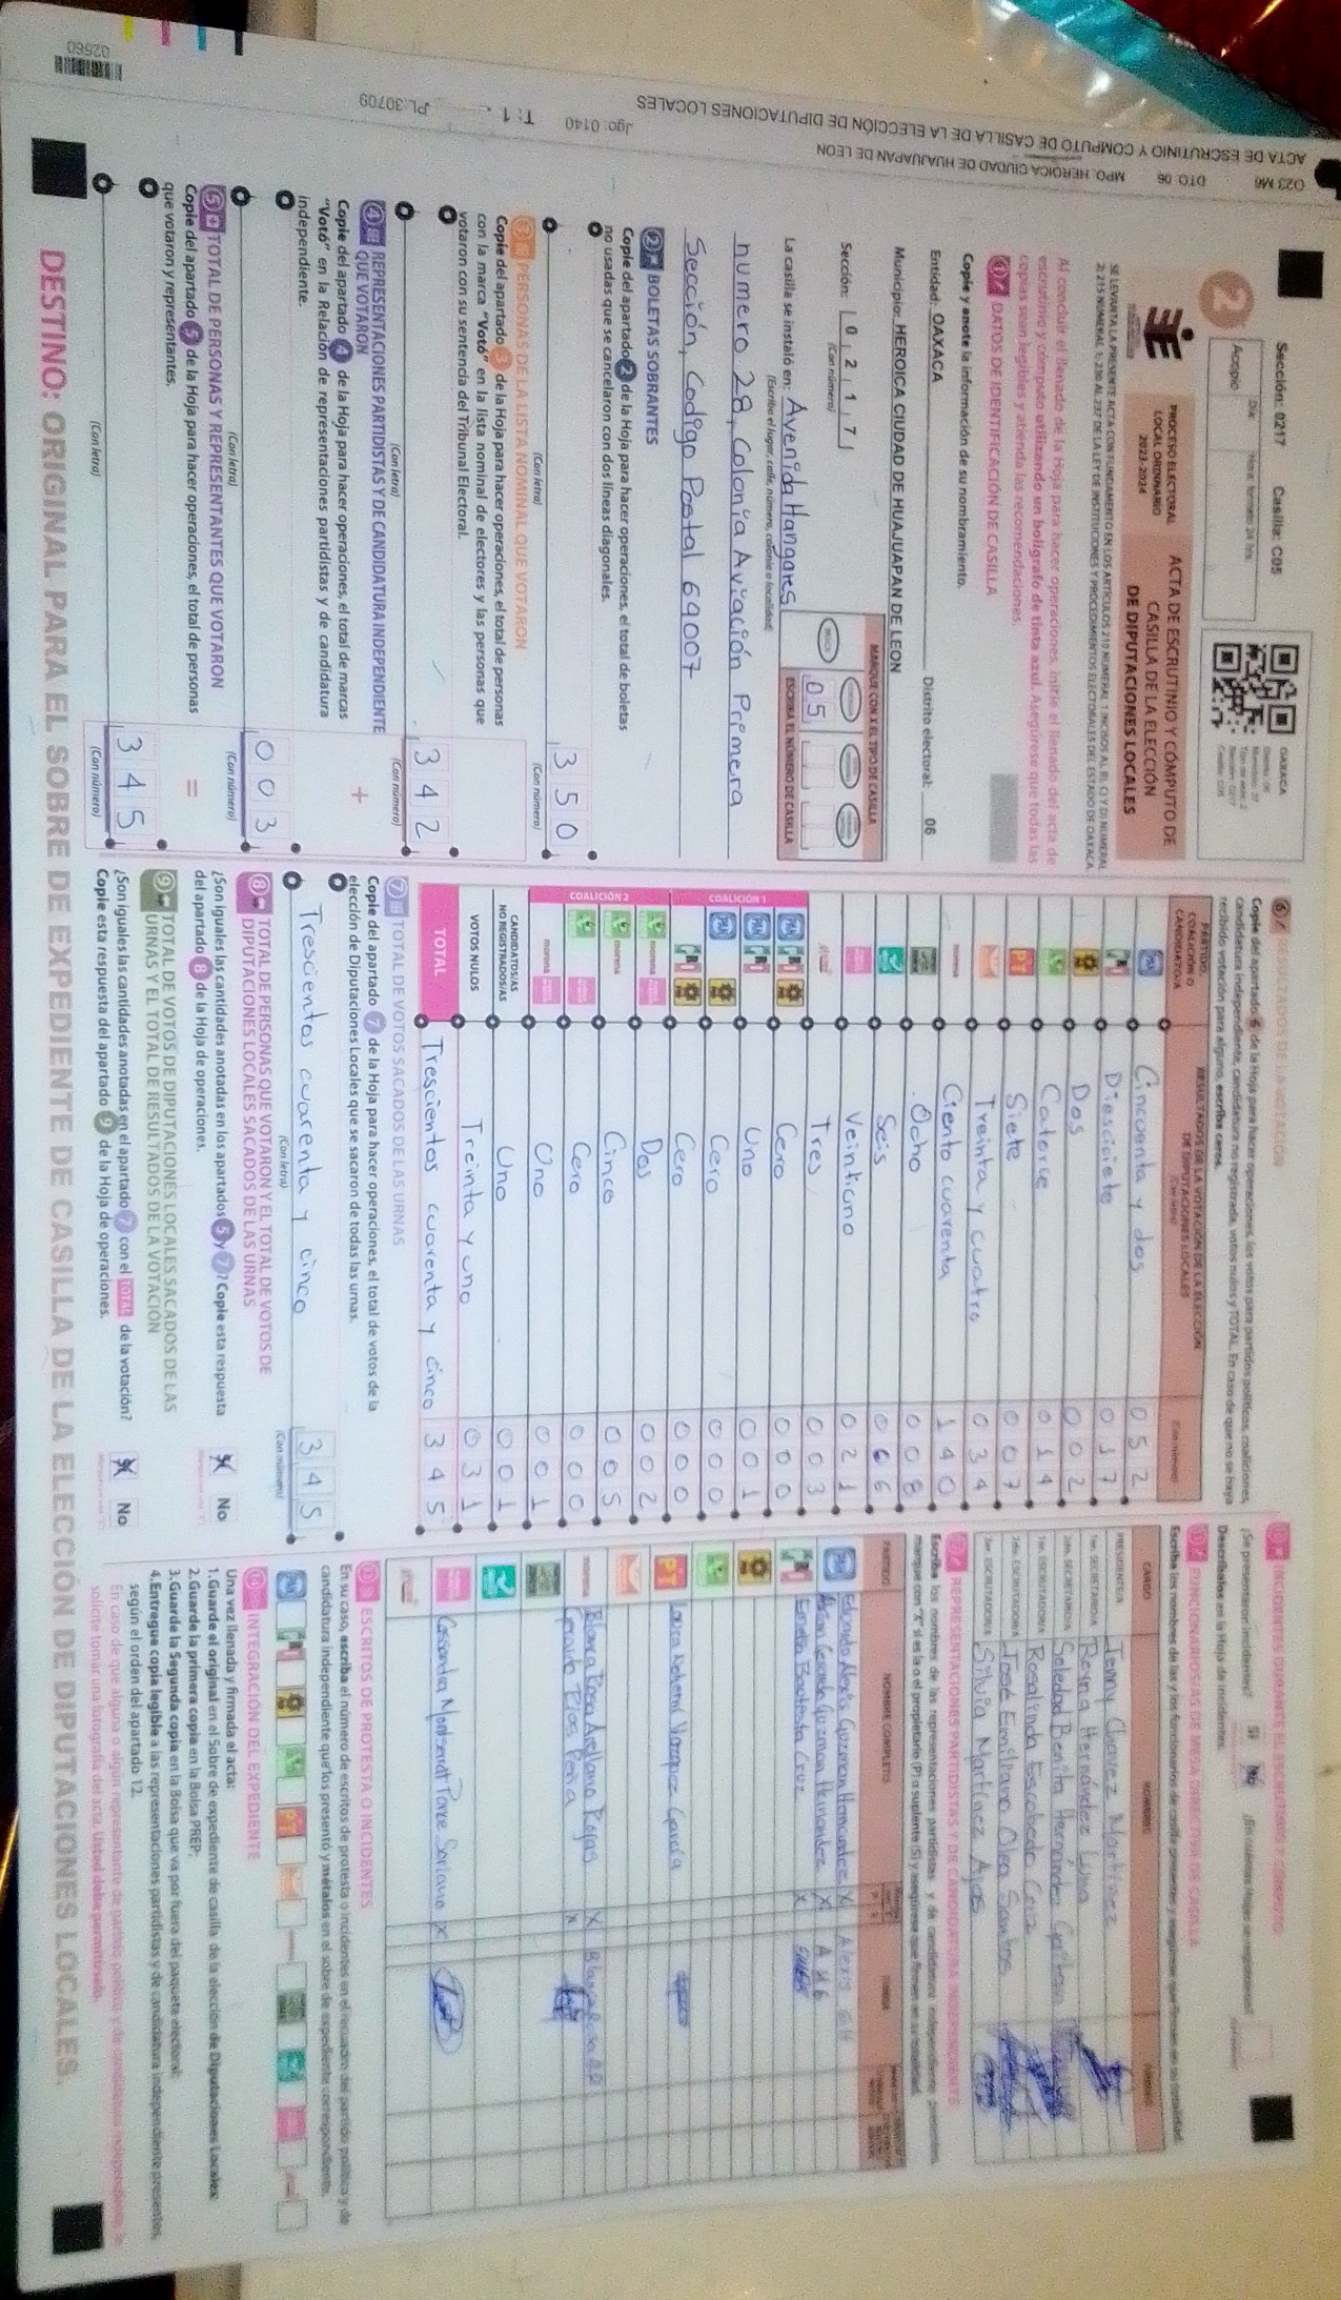 O23 M6 DTO. 06 MPO. HEROICA CIUDAD DE HUAJUAPAN DE LEON
ACTA DE ESCRUTINIO Y CÓMPUTO DE CASILLA DE LA ELECCIÓN DE DIPUTACIONES LOCALES
Jgo: 0140 T: 1 PL:30709
02560
Sección: 0217 Casilla: C05
2
Acopio
Día:
Hora: formato 24 hrs.
OAXACA
PROCESO ELECTORAL
LOCAL ORDINARIO
2023-2024
ACTA DE ESCRUTINIO Y CÓMPUTO DE
CASILLA DE LA ELECCIÓN
DE DIPUTACIONES LOCALES
Al concluir el llenado de la Hoja para hacer operaciones, inicie el llenado del acta de
escrutinio y cómputo utilizando un bolígrafo de tinta azul. Asegúrese que todas las
copias sean legibles y atienda las recomendaciones.
1 DATOS DE IDENTIFICACIÓN DE CASILLA
Copie y anote la información de su nombramiento.
Entidad: OAXACA Distrito electoral: 06
Municipio: HEROICA CIUDAD DE HUAJUAPAN DE LEON
Sección: 0 2 1 7
(Con número)
MARQUE CON X EL TIPO DE CASILLA
05
ESCRIBA EL NÚMERO DE CASILLA
La casilla se instaló en: Avenida Hangares
(Escriba el lugar, calle, número, colonia o localidad)
numero 28, Colonia Aviación Primera
Sección, Codigo Postal 69007
2 BOLETAS SOBRANTES
Copie del apartado 2 de la Hoja para hacer operaciones, el total de boletas
no usadas que se cancelaron con dos líneas diagonales.
3 5 0
(Con letra) (Con número)
3 PERSONAS DE LA LISTA NOMINAL QUE VOTARON
Copie del apartado 3 de la Hoja para hacer operaciones, el total de personas
con la marca "Votó" en la lista nominal de electores y las personas que
votaron con su sentencia del Tribunal Electoral.
3 4 2
(Con letra) (Con número)
4 REPRESENTACIONES PARTIDISTAS Y DE CANDIDATURA INDEPENDIENTE
QUE VOTARON
+
Copie del apartado 4 de la Hoja para hacer operaciones, el total de marcas
"Votó" en la Relación de representaciones partidistas y de candidatura
independiente.
0 0 3
(Con letra) (Con número)
5 TOTAL DE PERSONAS Y REPRESENTANTES QUE VOTARON
=
Copie del apartado 5 de la Hoja para hacer operaciones, el total de personas
que votaron y representantes.
3 4 5
(Con letra) (Con número)
6 RESULTADOS DE LA VOTACIÓN
Copie del apartado 6 de la Hoja para hacer operaciones, los votos para partidos políticos, coaliciones,
candidatura independiente, candidatura no registrada, votos nulos y TOTAL. En caso de que no se haya
recibido votación para alguno, escriba ceros.
PARTIDO,
COALICIÓN O
CANDIDATO/A
RESULTADOS DE LA VOTACIÓN DE LA ELECCIÓN
DE DIPUTACIONES LOCALES
(Con letra)
(Con número)
PAN Cincuenta y dos 0 5 2
PRI Diesciciete 0 1 7
PRD Dos 0 0 2
Catorce 0 1 4
PT Siete 0 0 7
Treinta y cuatro 0 3 4
morena Ciento cuarenta 1 4 0
Ocho 0 0 8
Seis 0 0 6
Veintiuno 0 2 1
Tres 0 0 3
COALICIÓN 1
PAN PRI PRD Cero 0 0 0
PAN PRI Uno 0 0 1
PAN PRD Cero 0 0 0
PRI PRD Cero 0 0 0
COALICIÓN 2
morena Dos 0 0 2
morena Cinco 0 0 5
Cero 0 0 0
morena Uno 0 0 1
CANDIDATOS/AS
NO REGISTRADOS/AS Uno 0 0 1
VOTOS NULOS Treinta y uno 0 3 1
TOTAL Trescientos cuarenta y cinco 3 4 5
7 TOTAL DE VOTOS SACADOS DE LAS URNAS
Copie del apartado 7 de la Hoja para hacer operaciones, el total de votos de la
elección de Diputaciones Locales que se sacaron de todas las urnas.
Trescientos cuarenta y cinco 3 4 5
(Con letra) (Con número)
8 TOTAL DE PERSONAS QUE VOTARON Y EL TOTAL DE VOTOS DE
DIPUTACIONES LOCALES SACADOS DE LAS URNAS
¿Son iguales las cantidades anotadas en los apartados 5 y 7? Copie esta respuesta
del apartado 8 de la Hoja de operaciones.
Sí No
9 TOTAL DE VOTOS DE DIPUTACIONES LOCALES SACADOS DE LAS
URNAS Y EL TOTAL DE RESULTADOS DE LA VOTACIÓN
¿Son iguales las cantidades anotadas en el apartado 7 con el TOTAL de la votación?
Copie esta respuesta del apartado 9 de la Hoja de operaciones.
Sí No
10 INCIDENTES DURANTE EL ESCRUTINIO Y CÓMPUTO
¿Se presentaron incidentes? Sí No
Descríbalos en la Hoja de incidentes.
FUNCIONARIOS/AS DE MESA DIRECTIVA DE CASILLA
CARGO NOMBRE FIRMA
PRESIDENTE/A Jenny Chavez Martinez
1er. SECRETARIO/A Reyna Hernández Luna
2do. SECRETARIO/A Soledad Benita Hernández
1er. ESCRUTADOR/A Rosalinda Escobedo Cruz
2do. ESCRUTADOR/A José Emiliano Olea Santos
3er. ESCRUTADOR/A Silvia Martínez
REPRESENTACIONES PARTIDISTAS Y DE CANDIDATURA INDEPENDIENTE
Escriba los nombres de las representaciones partidistas y de candidatura independiente presentes,
marque con "X" si es la o el propietario (P) o suplente (S) y asegúrese que firmen en su totalidad.
PARTIDO NOMBRE COMPLETO FIRMA
PAN Eduardo Alexis Guzman Hernandez X Alexis GH
Gerardo Guzman Hernandez X
PRI Ernesto Bautista Cruz X
PT Laura Nohemí Vazquez García
morena Blanca Rosa Arellano Rojas X
Gerardo Rios Peña X
Cassandra Montserrat Ponce Soriano X
ESCRITOS DE PROTESTA O INCIDENTES
En su caso, escriba el número de escritos de protesta o incidentes en el recuadro del partido político y de
candidatura independiente que los presentó y métalos en el sobre de expediente correspondiente.
INTEGRACIÓN DEL EXPEDIENTE
Una vez llenada y firmada el acta:
1. Guarde el original en el Sobre de expediente de casilla de la elección de Diputaciones Locales;
2. Guarde la primera copia en la Bolsa PREP;
3. Guarde la Segunda copia en la Bolsa que va por fuera del paquete electoral;
4. Entregue copia legible a las representaciones partidistas y de candidatura independiente presentes,
según el orden del apartado 12.
En caso de que alguna o algún representante de partido político y de candidatura independiente le
solicite tomar una fotografía del acta. Usted debe permitírselo.
DESTINO: ORIGINAL PARA EL SOBRE DE EXPEDIENTE DE CASILLA DE LA ELECCIÓN DE DIPUTACIONES LOCALES.